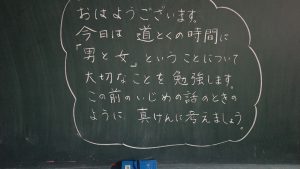 おはようございます。
今日は 道とくの時間に
「男と女」ということについて
大切なことを勉強します。
この前のいじめの話のときの
ように 真けんに考えましょう。